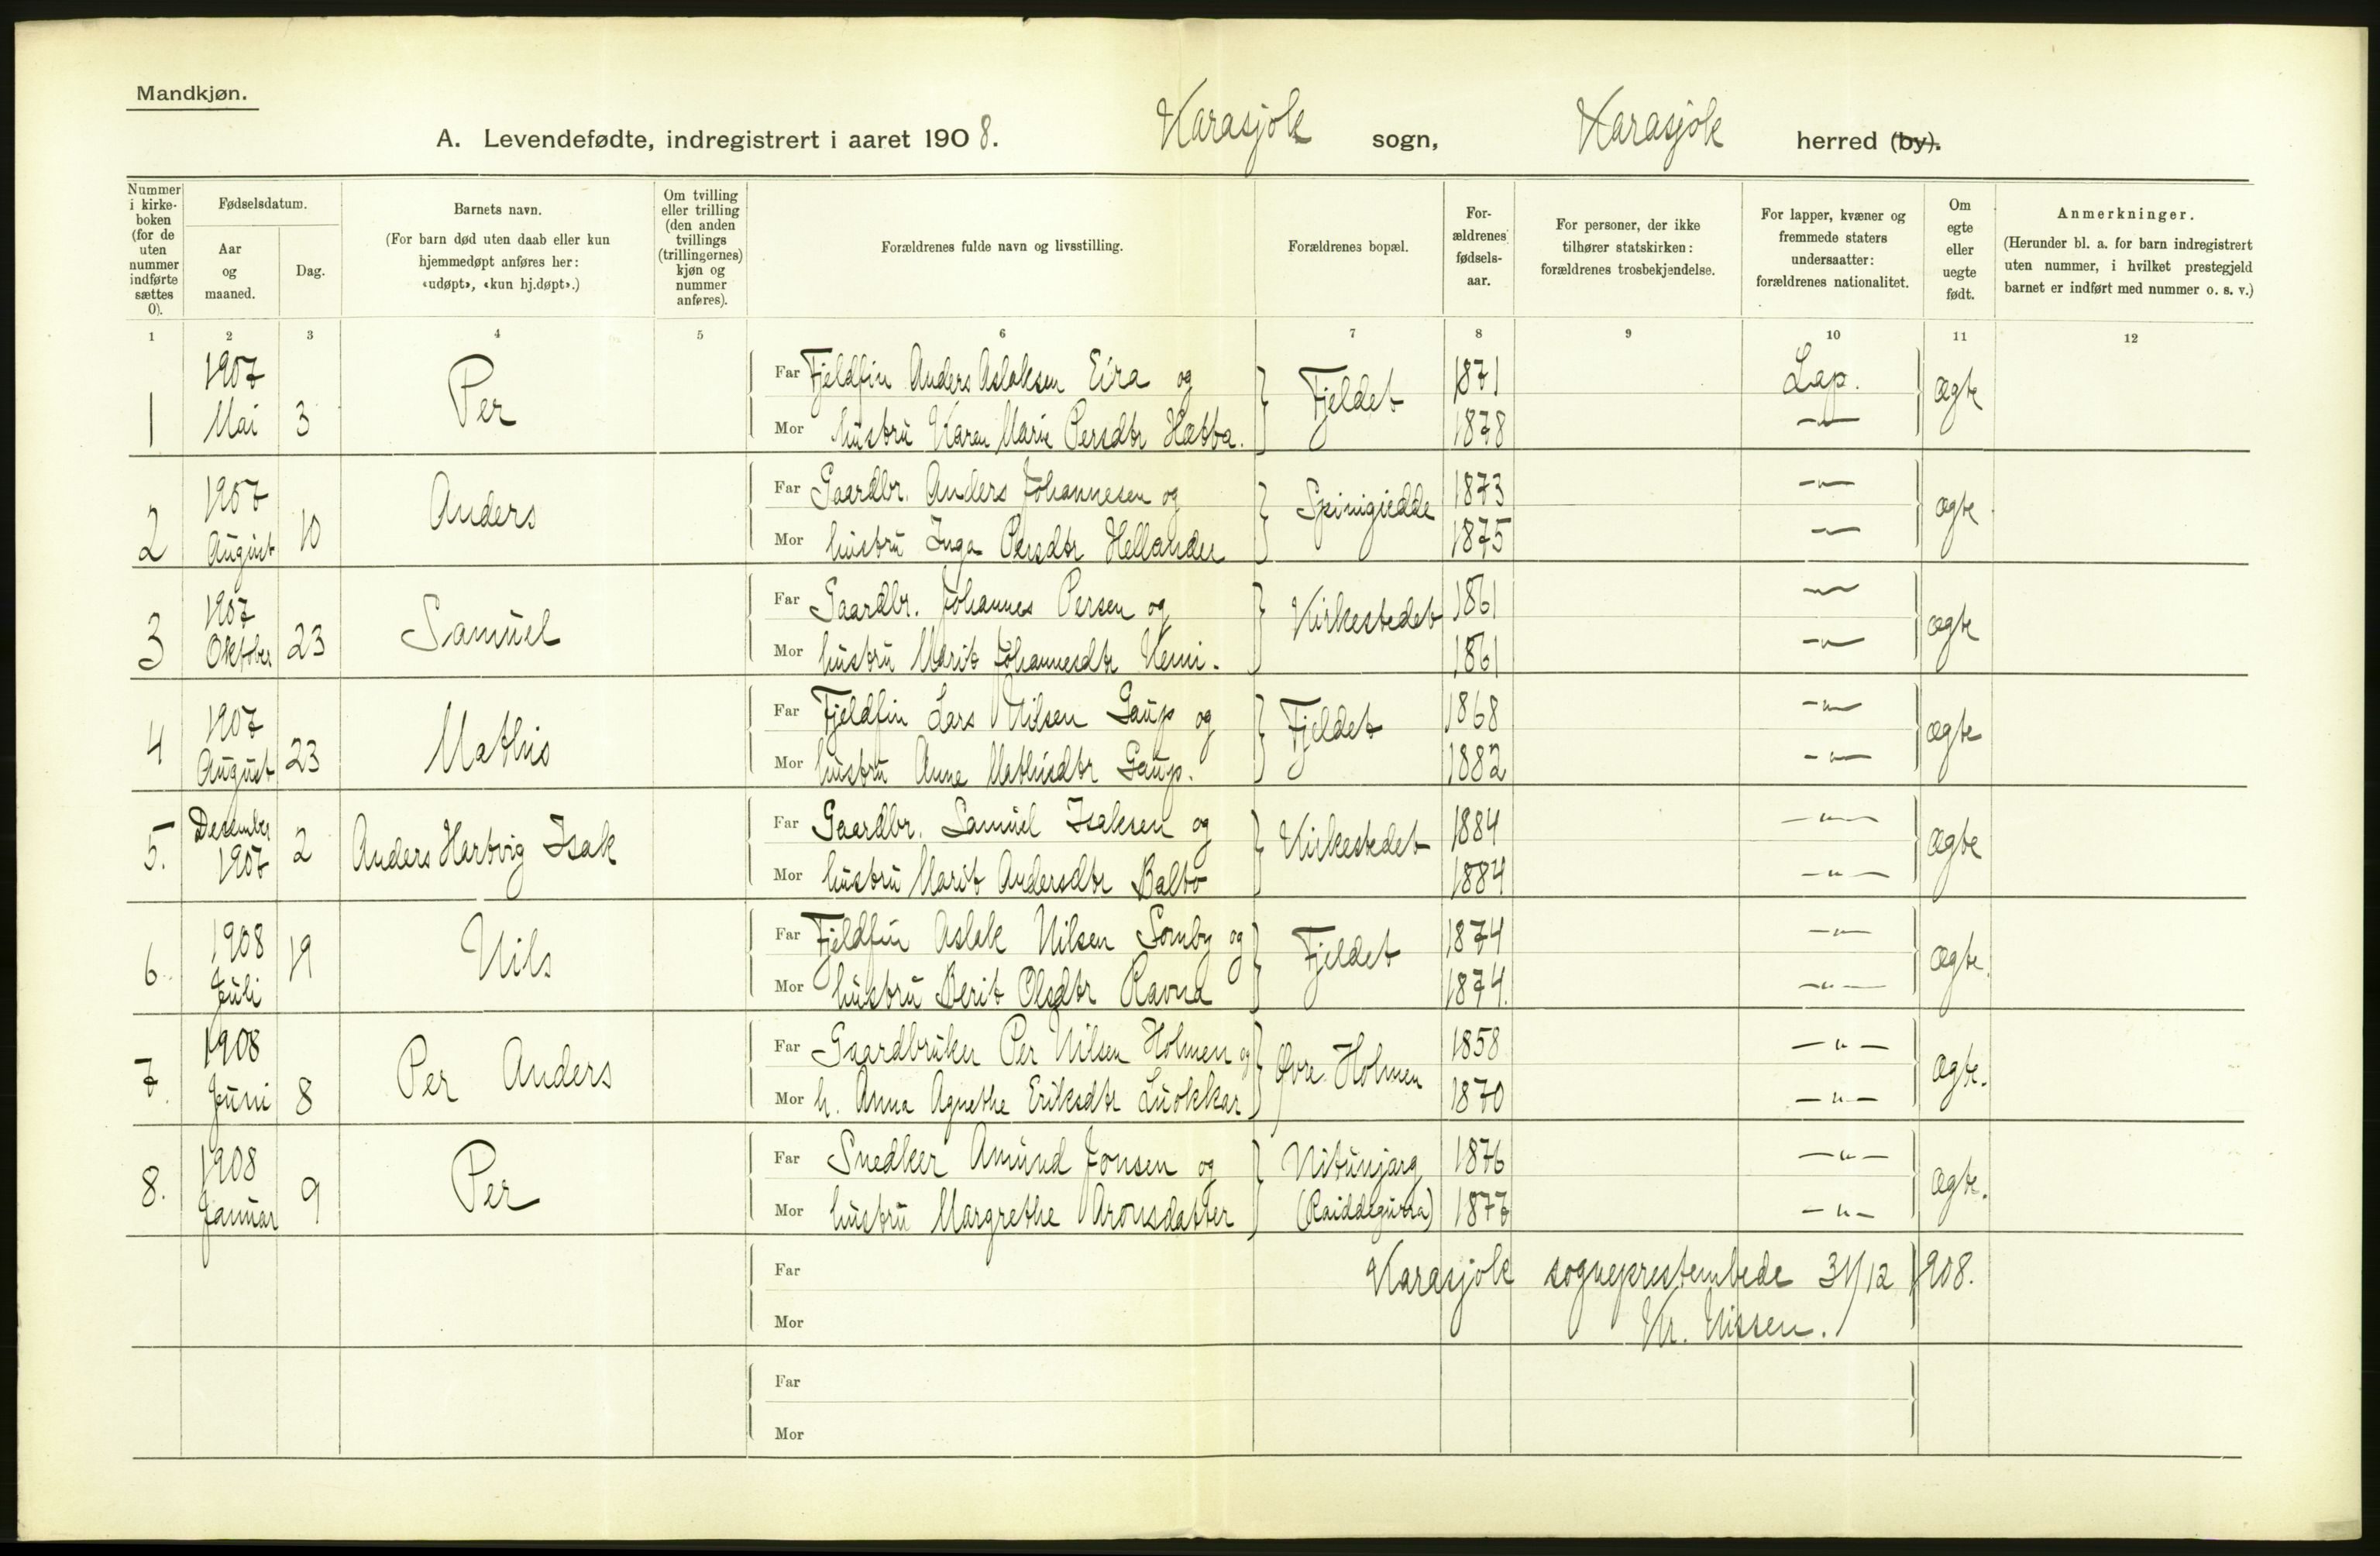 Mandkjøn.
A. Levendefødte, indregistrert i aaret 1908. Karasjok sogn, Karasjok herred (by).
Nummer i kirke-boken (for de uten nummer indførte sættes 0).
Fødselsdatum.
Aar og maaned.
Dag.
Barnets navn.
(For barn død uten daab eller kun hjemmedøpt anføres her: «udøpt», «kun hj.døpt».)
Om tvilling eller trilling (den anden tvillings (trillingernes) kjøn og nummer anføres).
Forældrenes fulde navn og livsstilling.
Forældrenes bopæl.
For-ældrenes fødsels-aar.
For personer, der ikke tilhører statskirken: forældrenes trosbekjendelse.
For lapper, kvæner og fremmede staters undersaatter: forældrenes nationalitet.
Om egte eller uegte født.
Anmerkninger.
(Herunder bl. a. for barn indregistrert uten nummer, i hvilket prestegjeld barnet er indført med nummer o. s. v.)
1 2 3 4 5 6 7 8 9 10 11 12
1 1907 Mai 3 Per
Far Fjeldfin Anders Aslaksen Eira og Fjeldet 1871 Lap. ægte
Mor hustru Karen Marie Persdtr Hætta. 1878 -"-
2 1907 August 10 Anders
Far Gaardbr. Anders Johannesen og 1873 -"- ægte
Mor hustru Inga Persdtr Hellander 1875 -"-
3 1907 Oktober 23 Samuel
Far Gaardbr. Johannes Persen og Kirkestedet 1861 -"- ægte
Mor hustru Marit Johannesdtr Kemi. 1861 -"-
4 1907 August 23 Mathis
Far Fjeldfin Lars Nilsen Gaup og Fjeldet 1868 -"- ægte
Mor hustru Anne Mathisdtr Gaup. 1882 -"-
5. Desember 1907 2 Anders Hartvig Isak
Far Gaardbr. Samuel Isaksen og Kirkestedet 1884 -"- ægte
Mor hustru Marit Andersdtr Balto 1884 -"-
6. 1908 Juli 19 Nils
Far Fjeldfin Aslak Nilsen Somby og Fjeldet 1874 -"- ægte.
Mor hustru Berit Olsdtr Ravna 1874. -"-
7. 1908 Juni 8 Per Anders
Far Gaardbruker Per Nilsen Holmen og Øvre Holmen 1858 -"- ægte.
Mor h. Anna Agnethe Eriksdtr Luokkar 1870 -"-
8. 1908 Januar 9 Per
Far Snedker Amund Jonsen og Nitunjarg 1876 -"- ægte.
Mor hustru Margrethe Aronsdatter (Raiddegurra) 1877 -"-
Far Karasjok sogneprestembede 31/12 1908.
Mor Kr. Nissen.
Far
Mor